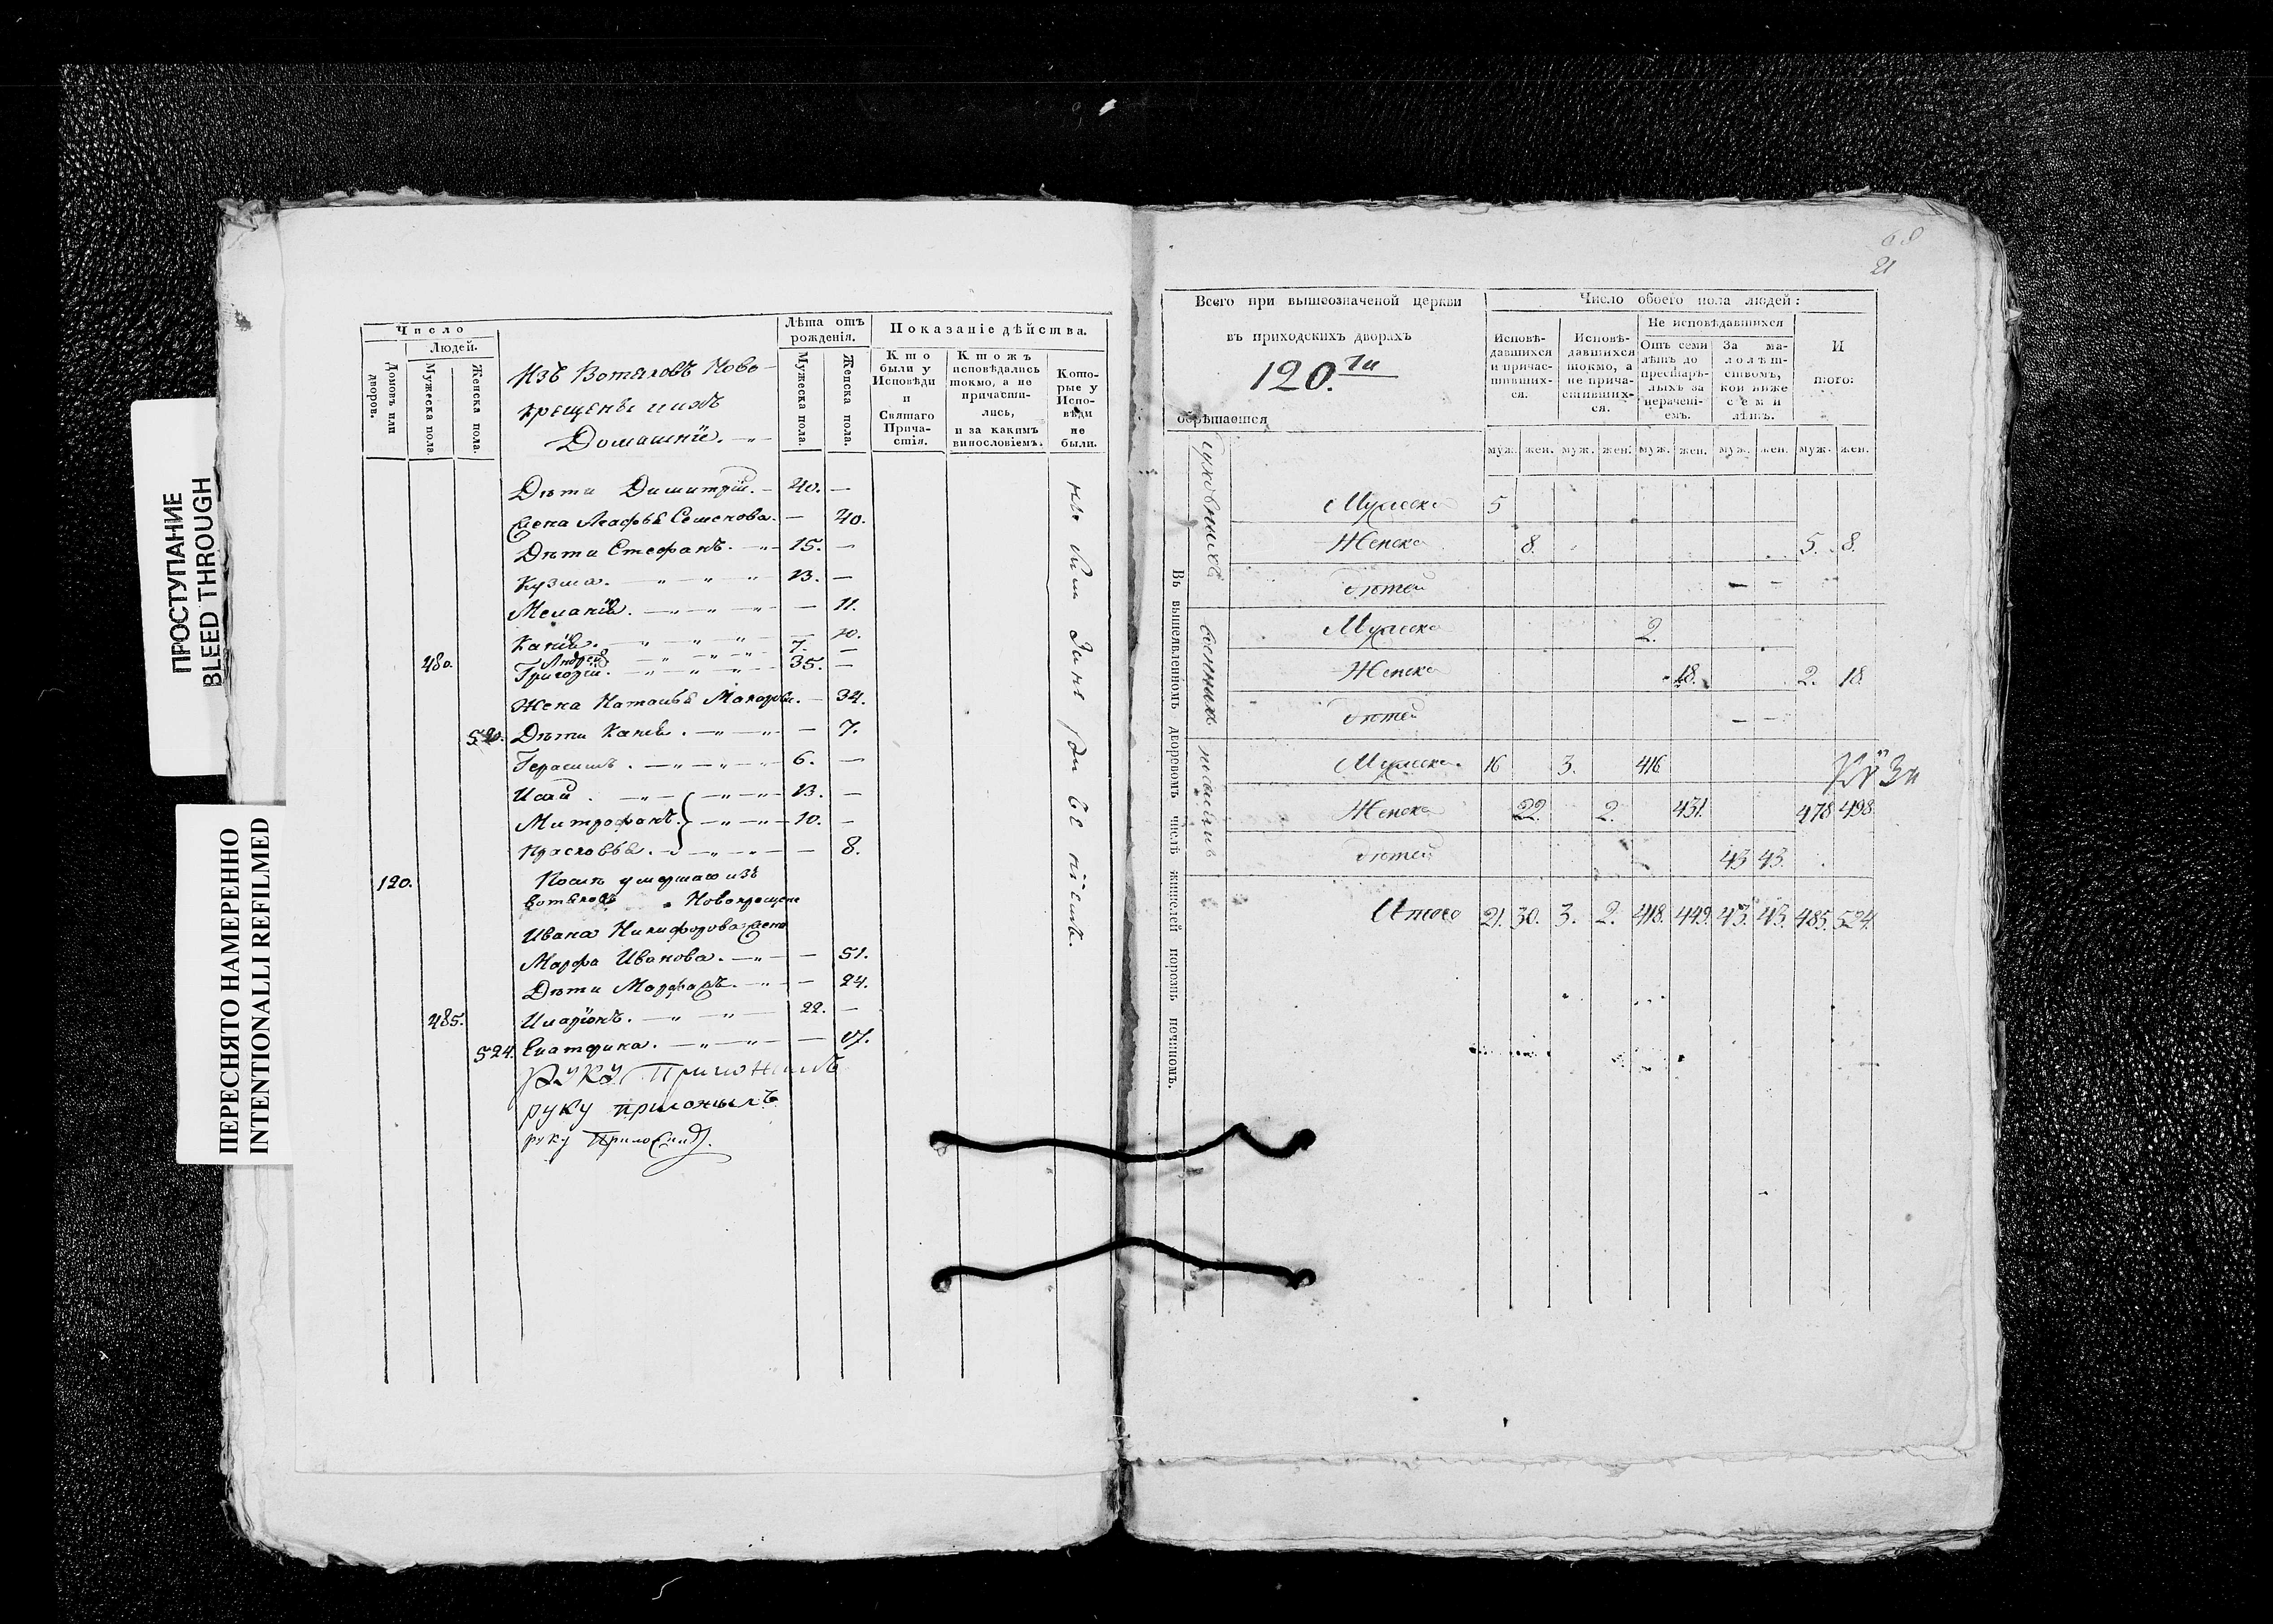 ПРОСТУПАНИЕ
BLEED THROUGH
ПЕРЕСНЯТО НАМЕРЕННО
INTENTIONALLI REFILMED
Число
Людей.
Домовъ или дворовъ.
Мужеска пола.
Женска пола.
Изъ Вотяковъ Ново-
крещены и ихъ
Домашнїи.
Лѣта отъ рожденія.
Мужеска пола.
Женска пола.
Показаніе дѣйства.
Кто были у Исповѣди и Святаго Причастія.
Ктожъ исповѣдались токмо, а не причастились, и за какимъ винословіемъ.
Которые у Исповѣди не были.
Дѣти Димитрїй. — 40. —
Жена Агафья Семенова. — 40.
Дѣти Стефанъ. — 15. —
Кузма. — 13. —
Меланїя. — 11.
— 10.
Андрей 7. —
480. Григорїй. — 35. —
Жена Наталья Макарова. — 34.
520. Дѣти — 7.
Герасимъ. — 6. —
13. —
Митрофанъ. — 10. —
Прасковья. — 8.
120. Послѣ умершаго изъ
вотяковъ Новокрещена
Ивана Никифорова жена
Марфа Иванова. — 51.
Дѣти Марфа — 24.
485. Иларїонъ. — 22. —
524. Екатерина. — 17.
руку приложилъ
руку приложилъ
руку приложилъ
21
Всего при вышеозначеной церкви
въ приходскихъ дворахъ
120.ти
обрѣтается
Число обоего пола людей:
Исповѣдавшихся и причастившихся.
Исповѣдавшихся токмо, а не причастившихся.
Не исповѣдавшихся
Отъ семи лѣтъ до престарѣлыхъ за нераченіемъ.
За малолѣтствомъ, кои ниже семи лѣтъ.
И того:
муж. жен. муж. жен. муж. жен. муж. жен. муж. жен.
Въ вышеявленномъ дворовомъ числѣ жителей порознь почи помъ.
Духовныхъ
Мужеска 5
Женска 8. 5. 8.
дѣтей — —
Мужеска 2.
Женска 18. 2. 18.
дѣтей — —
Мужеска. 16 3. 416
Женска 22. 2. 431. 478 498.
дѣтей 43 43.
Итого 21. 30. 3. 2. 418. 449. 43. 43. 485. 524.